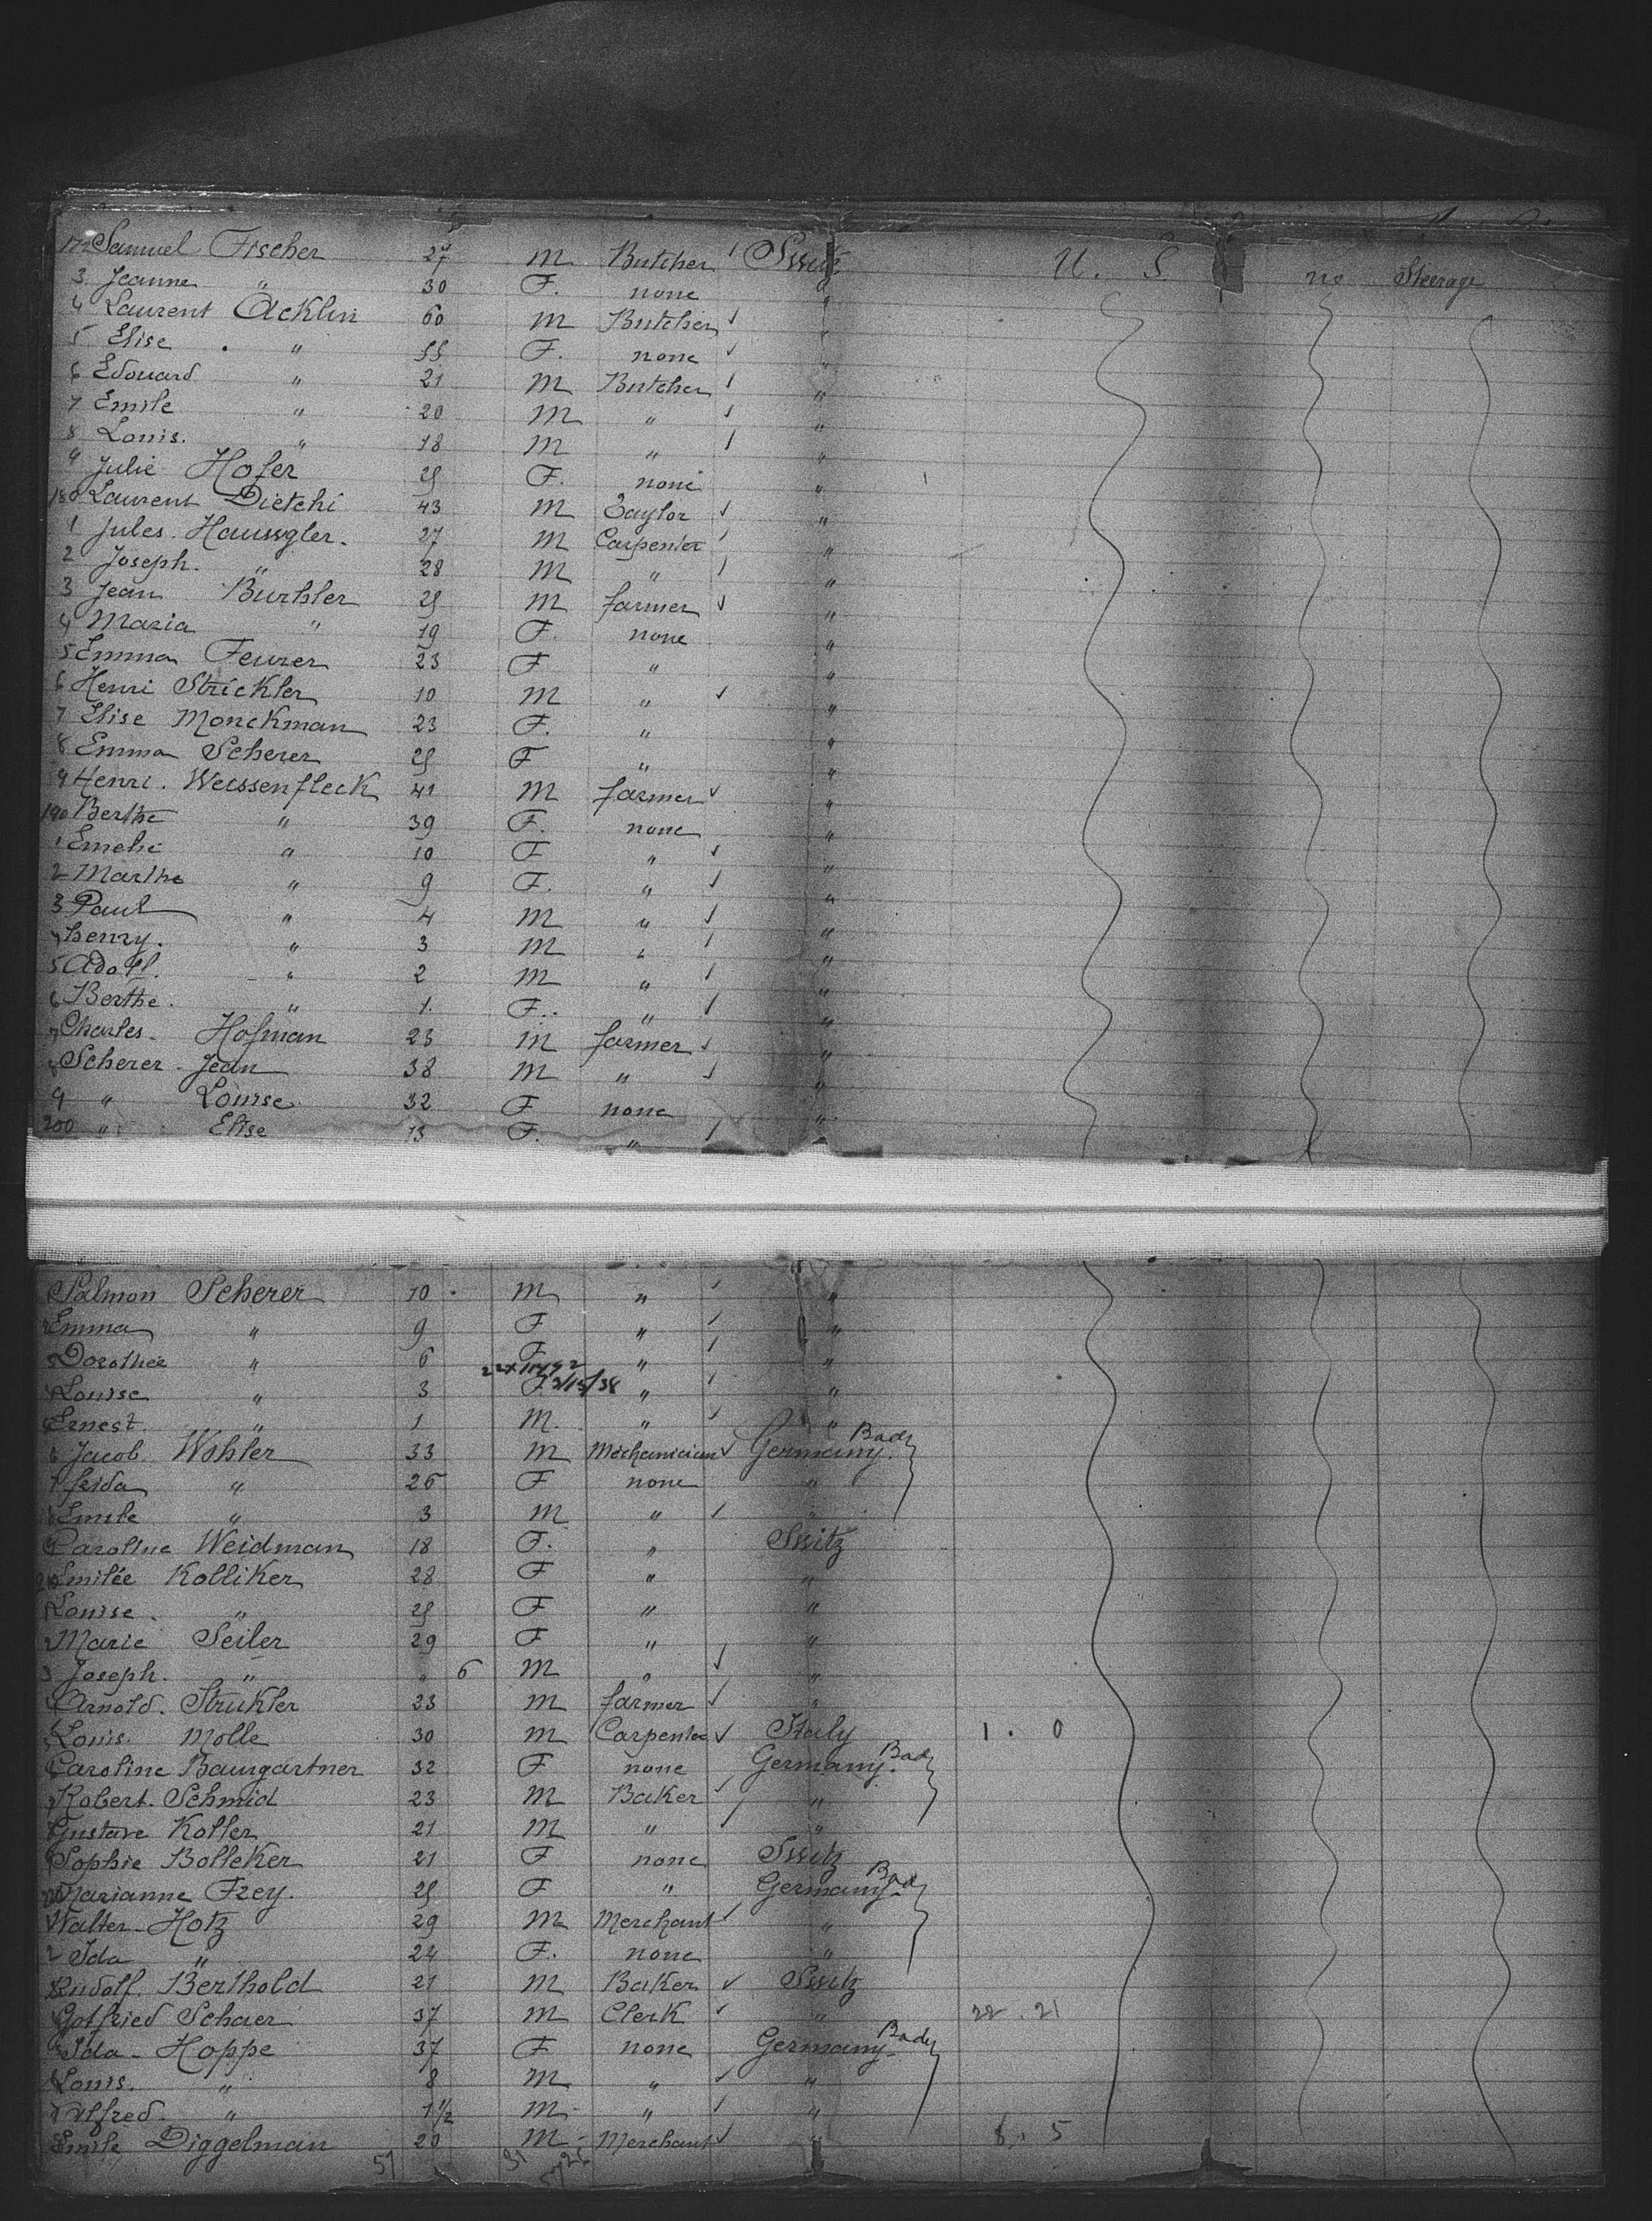 172 Samuel Fischer 27 m Butcher Switz U. S. no Steerage
3 Jeanne " 30 F. none "
4 Laurent Acklin 60 m Butcher "
5 Elise " 55 F. none "
6 Edouard " 21 m Butcher "
7 Emile " 20 m " "
8 Louis. " 18 m " "
9 Julie Hofer 25 F. none "
180 Laurent Dietchi 43 m Taylor "
1 Jules. Haussgler. 27 m Carpenter "
2 Joseph. " 28 m " "
3 Jean Burhler 25 m farmer "
4 Maria " 19 F. none "
5 Emma Feurer 23 F " "
6 Henri Strickler 10 m " "
7 Elise Monckman 23 F. " "
8 Emma Scherer 25 F " "
9 Henri. Weissenfleck 41 m farmer "
190 Berthe " 39 F. none "
1 Emelie " 10 F " "
2 Marthe " 9 F. " "
3 Paul " 4 m " "
4 henry. " 3 m " "
5 Adolf. " 2 m " "
6 Berthe. " 1. F. " "
7 Charles. Hofman 23 m farmer "
8 Scherer Jean 38 m " "
9 " Louise. 32 F none "
200 " Elise 13 F. " "
Salmon Scherer 10 m " "
2 Emma " 9 F " "
3 Dorothee " 6 F " "
4 Louise " 3 F " "
5 Ernest. " 1 m. " "
6 Jacob. Wohler 33 m Mechanician Germany. Bad
7 " 26 F none "
8 Emile " 3 m " "
9 Caroline Weidman 18 F. " Switz
Emilée Kolliker 28 F " "
Louise. " 25 F " "
2 Marie Seiler 29 F " "
3 Joseph. " " 6 m " "
4 Arnold. Strukler 23 m farmer "
5 Louis. Molle 30 m Carpenter Italy 1 . 0
6 Caroline Baumgartner 32 F none Germany. Bad
7 Robert. Schmid 23 m Baker "
8 Gustave Koller 21 m " "
9 Sophie Bolleker 21 F none Switz
Marianne Frey. 25 F " Germany Bad
1 Walter Hotz 29 m Merchant "
2 Ida " 24 F. none "
3 Rudolf. Berthold 21 m Baker Switz
4 Gotfried Schaer 37 m Clerk " 22 . 21
5 Ida Hoppe 37 F none Germany Bad
6 Louis. " 8 m " "
7 Alfred. " 1 1/2 m " "
8 Emile Diggelman 20 m Merchant " 5
57 31 26